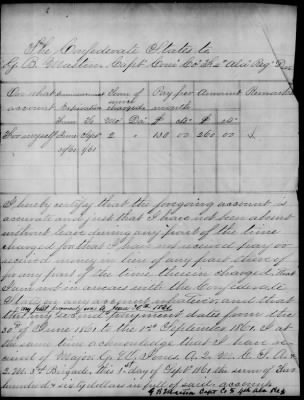 The Confederate States to
G. B. Mastin Capt Com'g Co 4th Ala Reg Dr
On what account. Commencement & Expiration Term of service charged Pay per month Amount Remarks
From To Mo Da $ cts $ cts
For myself June 30/61 Sept 1/61 2 " 130 00 260 00
I hereby certify that the foregoing account is
accurate and just that I have not been absent
without leave during any part of the time
charged for that I have not received pay or
received money in lieu of any part thereof
for any part of the time therein charged that
I am not in arrears with the Confederate
States on any account whatever, and that
my last payment was to June 30th 1861
dates from the
30th of June 1861 to the 1st September 1861. I at
the same time acknowledge that I have re
ceived of Major G. W. Jones A. Q. M. C. S. A.
Q. M. 3d Brigade, this 1st day of Sept 1861 the sum of Two
hundred & sixty dollars in full of said account.
G B Mastin Capt Co 4th Ala Reg